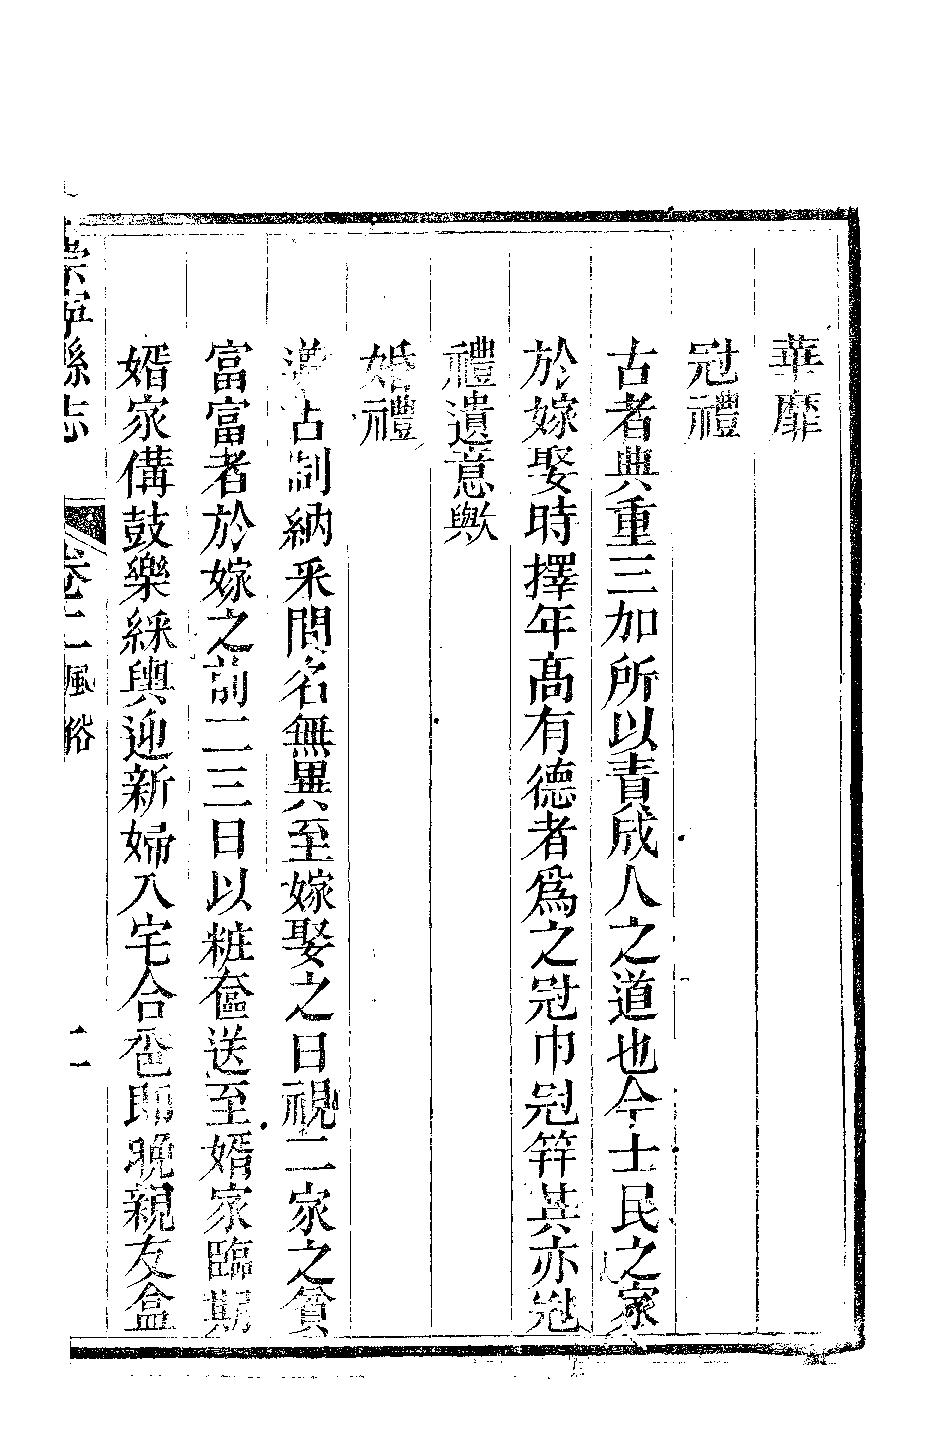 華靡
冠禮
古者典重三加所以責成人之道也今士民之家
於嫁娶時擇年高有德者爲之冠巾冠笄其亦冠
禮遺意歟
婚禮
遵古制納采問名無異至嫁娶之日視二家之貧
富富者於嫁之前二三日以粧奩送至婿家臨期
婿家備鼓樂綵輿迎新婦入宅合卺即晚親友盒
崇寧縣志 卷二風俗 二